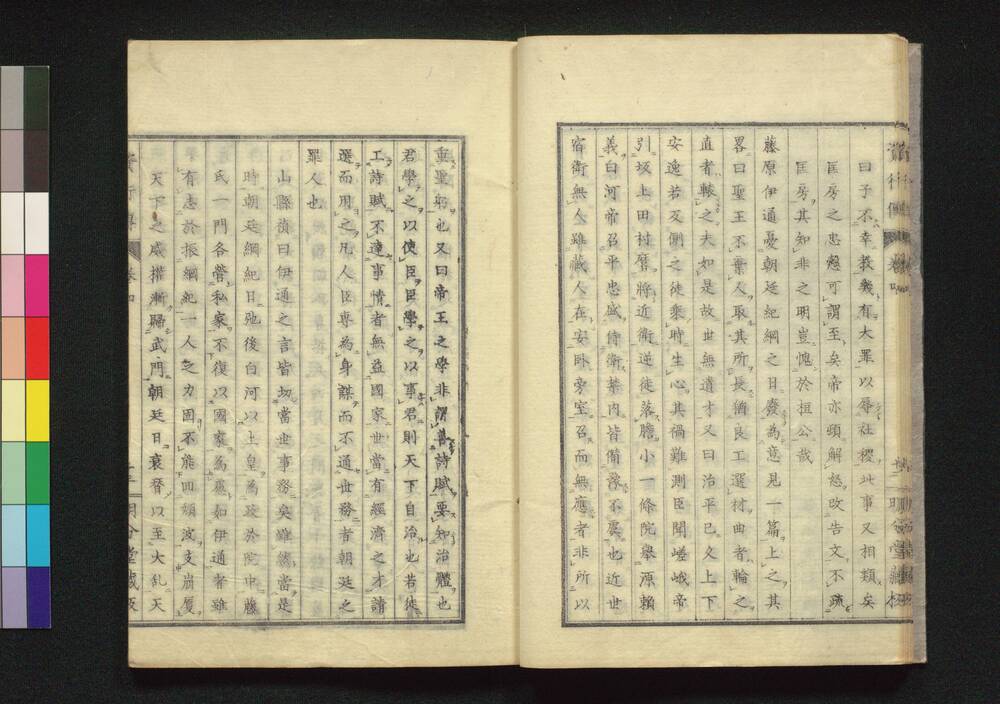 曰予不幸教養有大罪以辱社稷此事又相類矣
匡房之忠懇可謂至矣帝亦頓解怒改告文不疏
匡房其知非之明豈愧於桓公哉
藤原伊通憂朝廷紀綱之日廢為意見一篇上之其
畧曰聖王不棄人取其所長猶良工選材曲者輪之
直者轅之夫如是故世無遺才又曰治平已久上下
安逸若反側之徒乘時生心其禍難測臣聞嵯峨帝
引坂上田村麿將近衛逆徒落膽小一條院舉源賴
義白河帝召平忠盛侍衛禁内皆備豫不虞也近世
宿衛無人雖藏人在安臥旁室召而無應者非所以
重聖躬也又曰帝王之學非謂善詩賦要知治體也
君學之以使臣臣學之以事君則天下自治也若徒
工詩賦不達事情者無益國家世當有經濟之才請
選而用之凡人臣專為身謀而不通世務者朝廷之
罪人也
山縣禎曰伊通之言皆切當世事務矣雖然當是
時朝廷綱紀日弛後白河以上皇為政於院中藤
氏一門各營私家不復以國家為慮如伊通者雖
有志於振綱紀一人之力固不能回頽波支崩厦
天下之威權漸歸武門朝廷日衰替以至大乱天